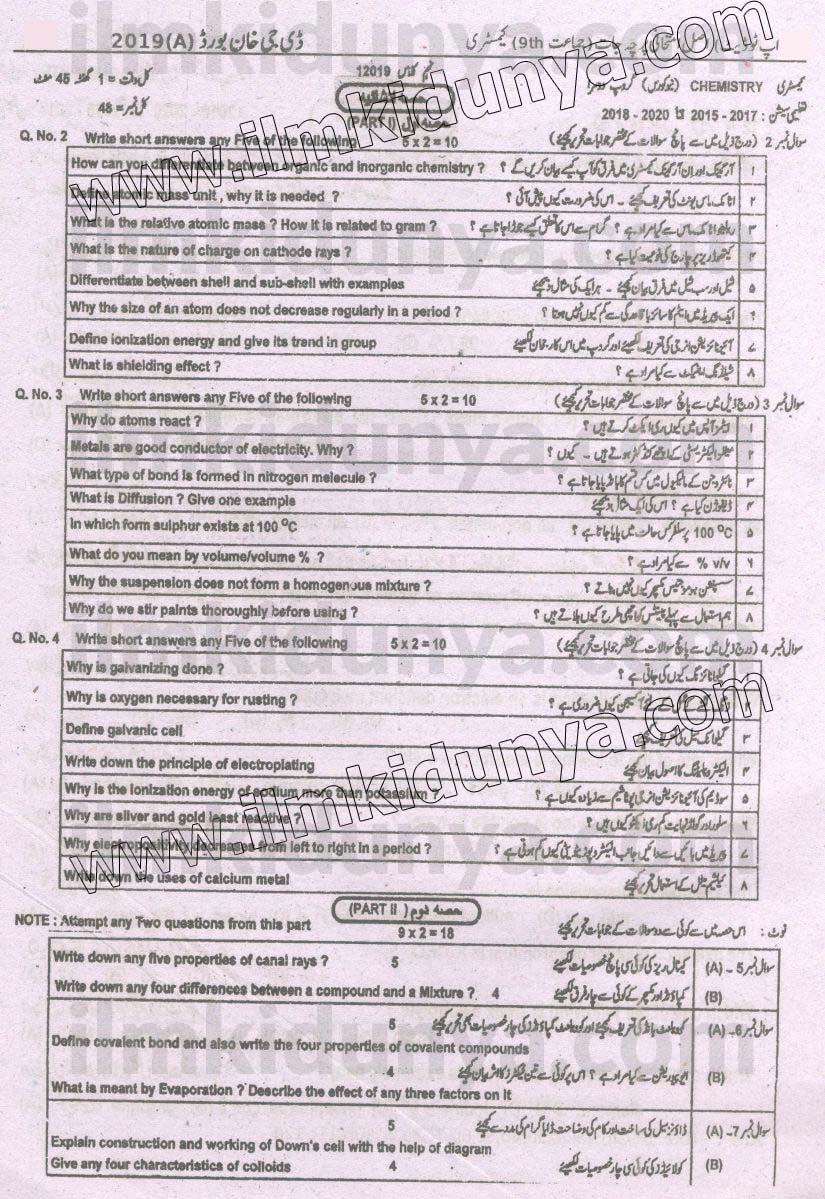 اپ ٹو ڈیٹ (اصل) امتحانی پرچہ جات (جماعت 9th) کیمسٹری
ڈی جی خان بورڈ 2019 (A)
www.ilmkidunya.com
12019
کل وقت = 1 گھنٹہ 45 منٹ
کیمسٹری CHEMISTRY گروپ دوسرا
(PART I) حصہ اول
کل نمبر = 48
تعلیمی سیشن : 2015 - 2017 تا 2018 - 2020
Q. No. 2 Write short answers any Five of the following 5 x 2 = 10 سوال نمبر 2 (درج ذیل میں سے پانچ سوالات کے مختصر جوابات تحریر کیجئے)
How can you differentiate between organic and inorganic chemistry ? آرگینک اور ان آرگینک کیمسٹری میں فرق کو آپ کیسے بیان کریں گے ؟ ۱
Define atomic mass unit , why it is needed ? اٹامک ماس یونٹ کی تعریف کیجئے ۔ اس کی ضرورت کیوں پیش آئی ؟ ۲
What is the relative atomic mass ? How it is related to gram ? ریلیٹو اٹامک ماس سے کیا مراد ہے ؟ گرام سے اس کا تعلق کیسے جوڑا جاتا ہے ؟ ۳
What is the nature of charge on cathode rays ? کیتھوڈ ریز پر چارج کی نوعیت کیا ہے ؟ ۴
Differentiate between shell and sub-shell with examples شیل اور سب شیل میں فرق بیان کیجئے ۔ ہر ایک کی مثال دیجئے ۵
Why the size of an atom does not decrease regularly in a period ? ایک پیریڈ میں ایٹم کا سائز باقاعدگی سے کم کیوں نہیں ہوتا ؟ ۶
Define ionization energy and give its trend in group آئیونائزیشن انرجی کی تعریف کیجئے اور گروپ میں اس کا رجحان لکھیئے ۷
What is shielding effect ? شیلڈنگ ایفیکٹ سے کیا مراد ہے ؟ ۸
Q. No. 3 Write short answers any Five of the following 5 x 2 = 10 سوال نمبر 3 (درج ذیل میں سے پانچ سوالات کے مختصر جوابات تحریر کیجئے)
Why do atoms react ? ایٹمز آپس میں کیوں ری ایکٹ کرتے ہیں ؟ ۱
Metals are good conductor of electricity. Why ? میٹلز الیکٹریسٹی کے اچھے کنڈکٹر ہوتے ہیں ۔ کیوں ؟ ۲
What type of bond is formed in nitrogen melecule ? نائٹروجن کے مالیکیول میں کس قسم کا بانڈ پایا جاتا ہے ؟ ۳
What is Diffusion ? Give one example ڈفیوژن کیا ہے ؟ اس کی ایک مثال دیجئے ۴
In which form sulphur exists at 100 ⁰C 100 ⁰C پر سلفر کس حالت میں پایا جاتا ہے ؟ ۵
What do you mean by volume/volume % ? % v/v سے کیا مراد ہے ؟ ۶
Why the suspension does not form a homogenous mixture ? سسپنشن ہوموجینیس مکسچر کیوں نہیں بناتے ؟ ۷
Why do we stir paints thoroughly before using ? ہم استعمال سے پہلے پینٹس کو اچھی طرح کیوں ہلاتے ہیں ؟ ۸
Q. No. 4 Write short answers any Five of the following 5 x 2 = 10 سوال نمبر 4 (درج ذیل میں سے پانچ سوالات کے مختصر جوابات تحریر کیجئے)
Why is galvanizing done ? گیلوانائزنگ کیوں کی جاتی ہے ؟ ۱
Why is oxygen necessary for rusting ? آکسیجن کیوں ضروری ہے ؟ ۲
Define galvanic cell گیلوانک سیل کی تعریف کیجئے ۳
Write down the principle of electroplating الیکٹروپلیٹنگ کا اصول بیان کیجئے ۴
Why is the ionization energy of sodium more than potassium ? سوڈیم کی آئیونائزیشن انرجی پوٹاشیم سے زیادہ کیوں ہے ؟ ۵
Why are silver and gold least reactive ? سلور اور گولڈ نہایت کم ری ایکٹو کیوں ہیں ؟ ۶
Why electropositivity decreases from left to right in a period ? پیریڈ میں بائیں سے دائیں جانب الیکٹروپوزیٹیویٹی کیوں کم ہوتی ہے ؟ ۷
Write down the uses of calcium metal کیلشیم میٹل کے استعمال تحریر کیجئے ۸
(PART II) حصہ دوم
NOTE : Attempt any Two questions from this part 9 x 2 = 18 نوٹ : اس حصہ میں سے کوئی سے دو سوالات کے جوابات تحریر کیجئے
Write down any five properties of canal rays ? 5 کینال ریز کی کوئی سی پانچ خصوصیات لکھیئے سوال نمبر 5 - (A)
Write down any four differences between a compound and a Mixture ? 4 کمپاؤنڈ اور مکسچر کے کوئی سے چار فرق لکھیئے (B)
5 کوویلنٹ بانڈ کی تعریف کیجئے اور کوویلنٹ کمپاؤنڈز کی چار خصوصیات بھی تحریر کیجئے سوال نمبر 6- (A)
Define covalent bond and also write the four properties of covalent compounds
4 ایوپوریشن سے کیا مراد ہے ؟ اس پر کوئی سے تین فیکٹرز کا اثر بیان کیجئے (B)
What is meant by Evaporation ? Describe the effect of any three factors on it
5 ڈاؤنز سیل کی ساخت اور کام کی وضاحت ڈایاگرام کی مدد سے کیجئے سوال نمبر 7- (A)
Explain construction and working of Down's cell with the help of diagram
Give any four characteristics of colloids 4 کولائیڈز کی کوئی سی چار خصوصیات لکھیئے (B)
www.ilmkidunya.com